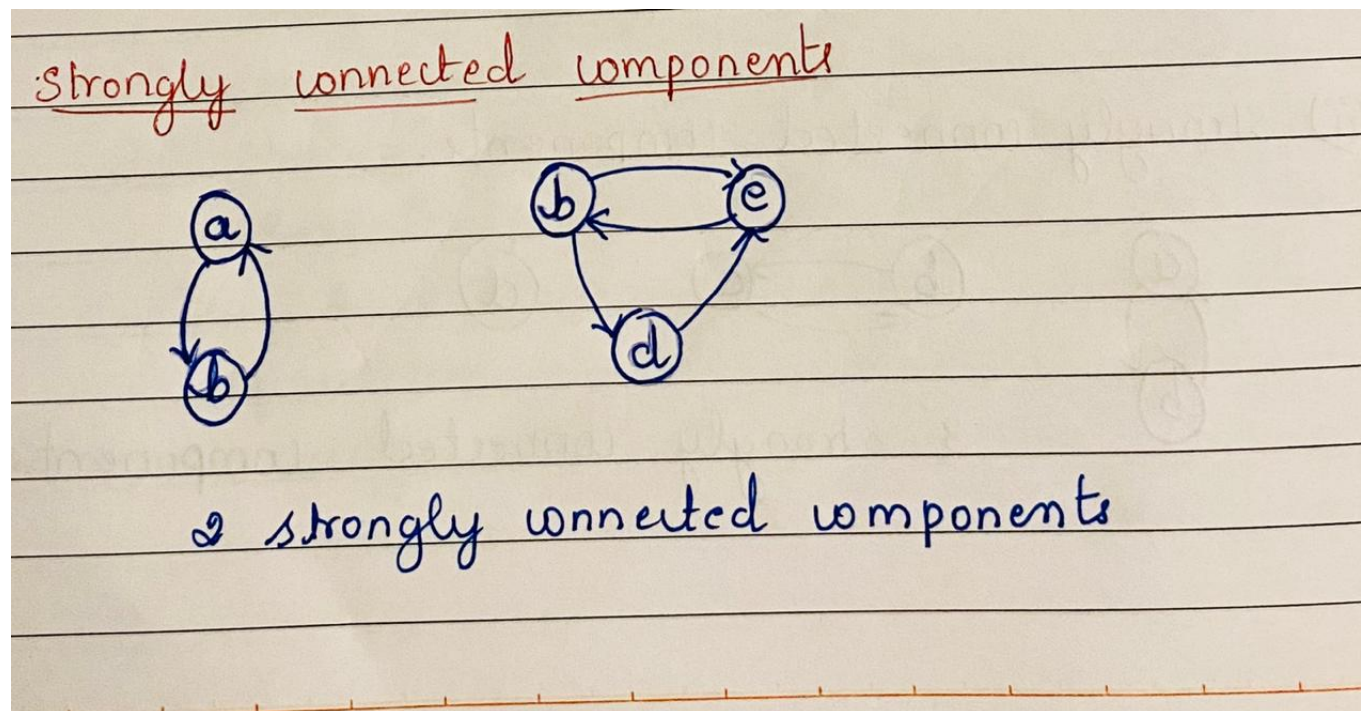 strongly connected components
a b e
b d
2 strongly connected components